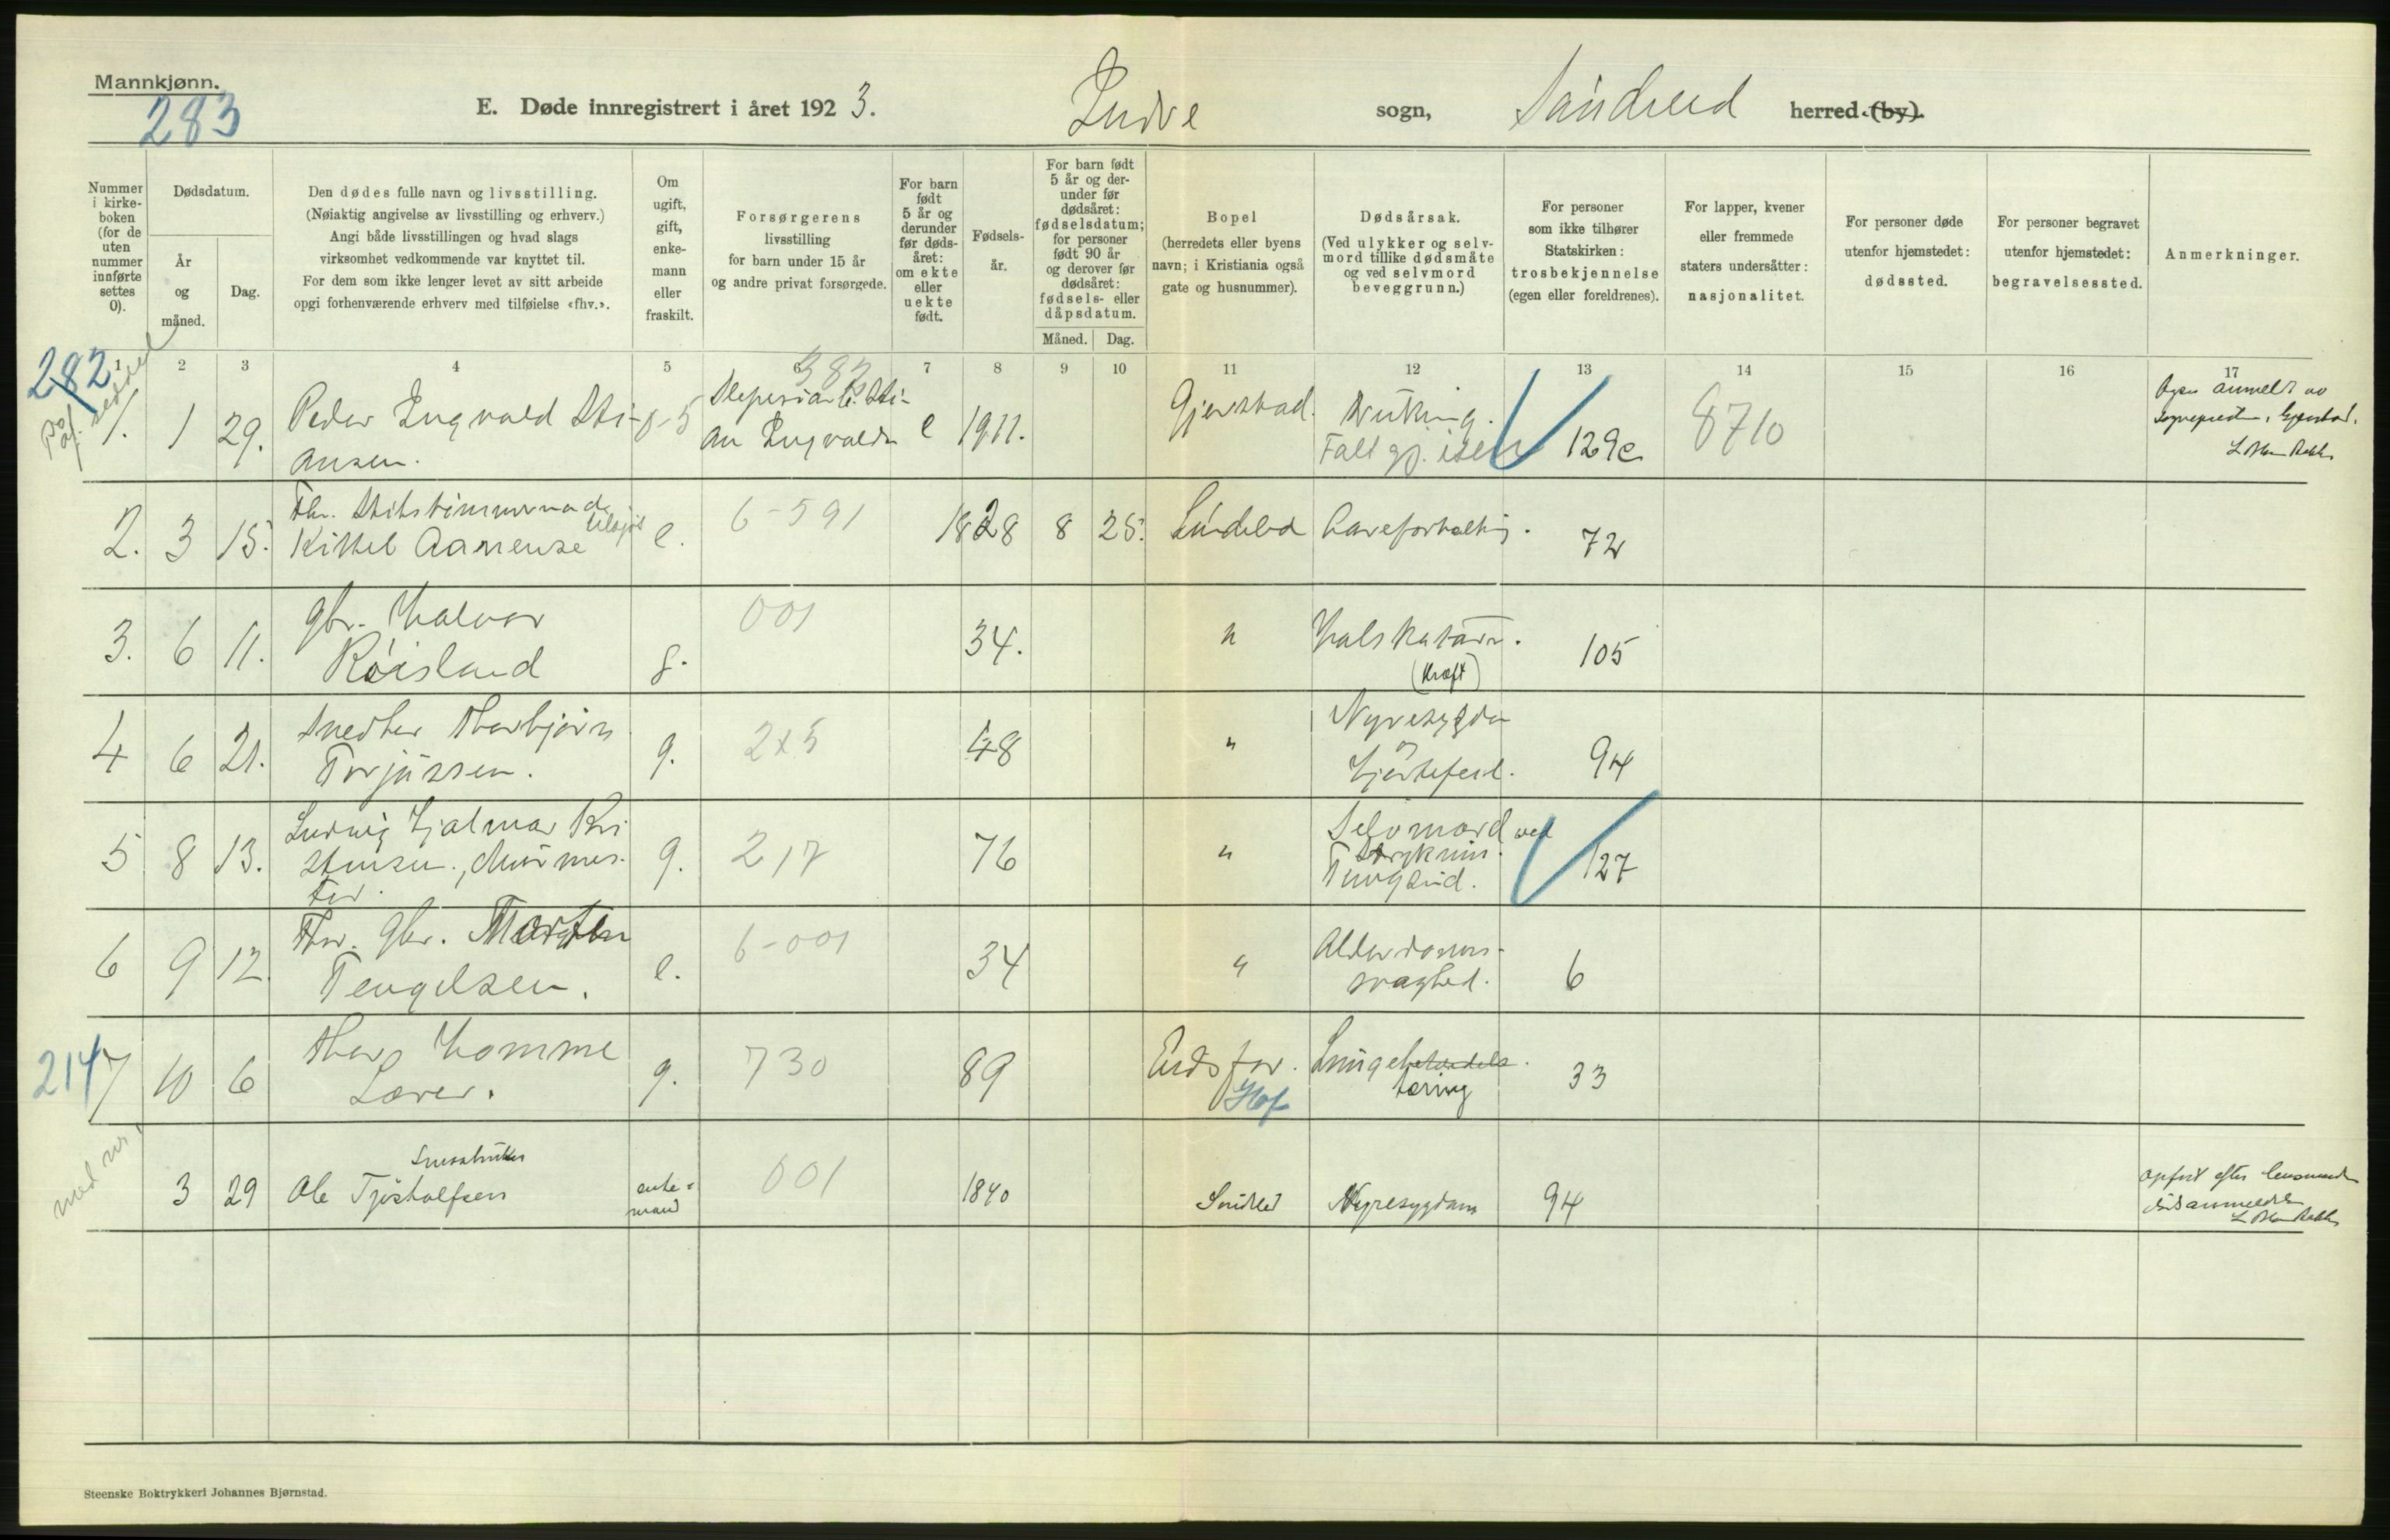 Mannkjønn.
283
E. Døde innregistrert i året 1923.
Indre sogn, Søndeled herred. (by).
Nummer i kirkeboken (for de uten nummer innførte settes 0).
Dødsdatum.
År og måned.
Dag.
Den dødes fulle navn og livsstilling.
(Nøiaktig angivelse av livsstilling og erhverv.)
Angi både livsstillingen og hvad slags
virksomhet vedkommende var knyttet til.
For dem som ikke lenger levet av sitt arbeide
opgi forhenværende erhverv med tilføielse «fhv.».
Om ugift, gift, enkemann eller fraskilt.
Forsørgerens
livsstilling
for barn under 15 år
og andre privat forsørgede.
For barn født 5 år og derunder før dødsåret: om ekte eller uekte født.
Fødselsår.
For barn født 5 år og derunder før dødsåret: fødselsdatum; for personer født 90 år og derover før dødsåret: fødsels- eller dåpsdatum.
Måned.
Dag.
Bopel
(herredets eller byens
navn; i Kristiania også
gate og husnummer).
Dødsårsak.
(Ved ulykker og selvmord tillike dødsmåte og ved selvmord beveggrunn.)
For personer
som ikke tilhører
Statskirken:
trosbekjennelse
(egen eller foreldrenes).
For lapper, kvener
eller fremmede
staters undersåtter:
nasjonalitet.
For personer døde
utenfor hjemstedet:
dødssted.
For personer begravet
utenfor hjemstedet:
begravelsessted.
Anmerkninger.
1 2 3 4 5 6 7 8 9 10 11 12 13 14 15 16 17
282
383
1. 1 29. Peder Ingvald Sti-
ansen.
0-5
an Ingvalds e 1911. Gjerstad. Drukning.
Falt gj. isen 129c 8710
Ogsaa anmeldt av
2. 3 15. Kittel Aanense e. 6-591 1828 8 25. Søndeled 72
3. 6 11. gbr. Halvor
Røisland g. 001 34. " Halskatarr.
(Kræft) 105
4 6 21. Snedker Thorbjørn
Terjussen. g. 2x5 48 " Nyresygdom
Hjertefeil. 94
5 8 13. Ludvig Hjalmar Kri
stensen., Murmes-
ter. g. 217 76 " Selvmord ved
Stryknin.
Tungsind. 127
6 9 12. Fhv. gbr. Morten
Tengelsen. e. 6-001 34 " Alderdoms-
svaghed. 6
214 7 10 6 Thor Homme
Lærer. g. 730 89 Eidsfos.
Hof
Lungebetændelse.
tæring 33
3 29 Ole Tjøstolfsen enke-
mand 001 1840 Søndeled Nyresygdom 94
Opført efter lensmandens
dødsanmeldelse
Steenske Boktrykkeri Johannes Bjørnstad.